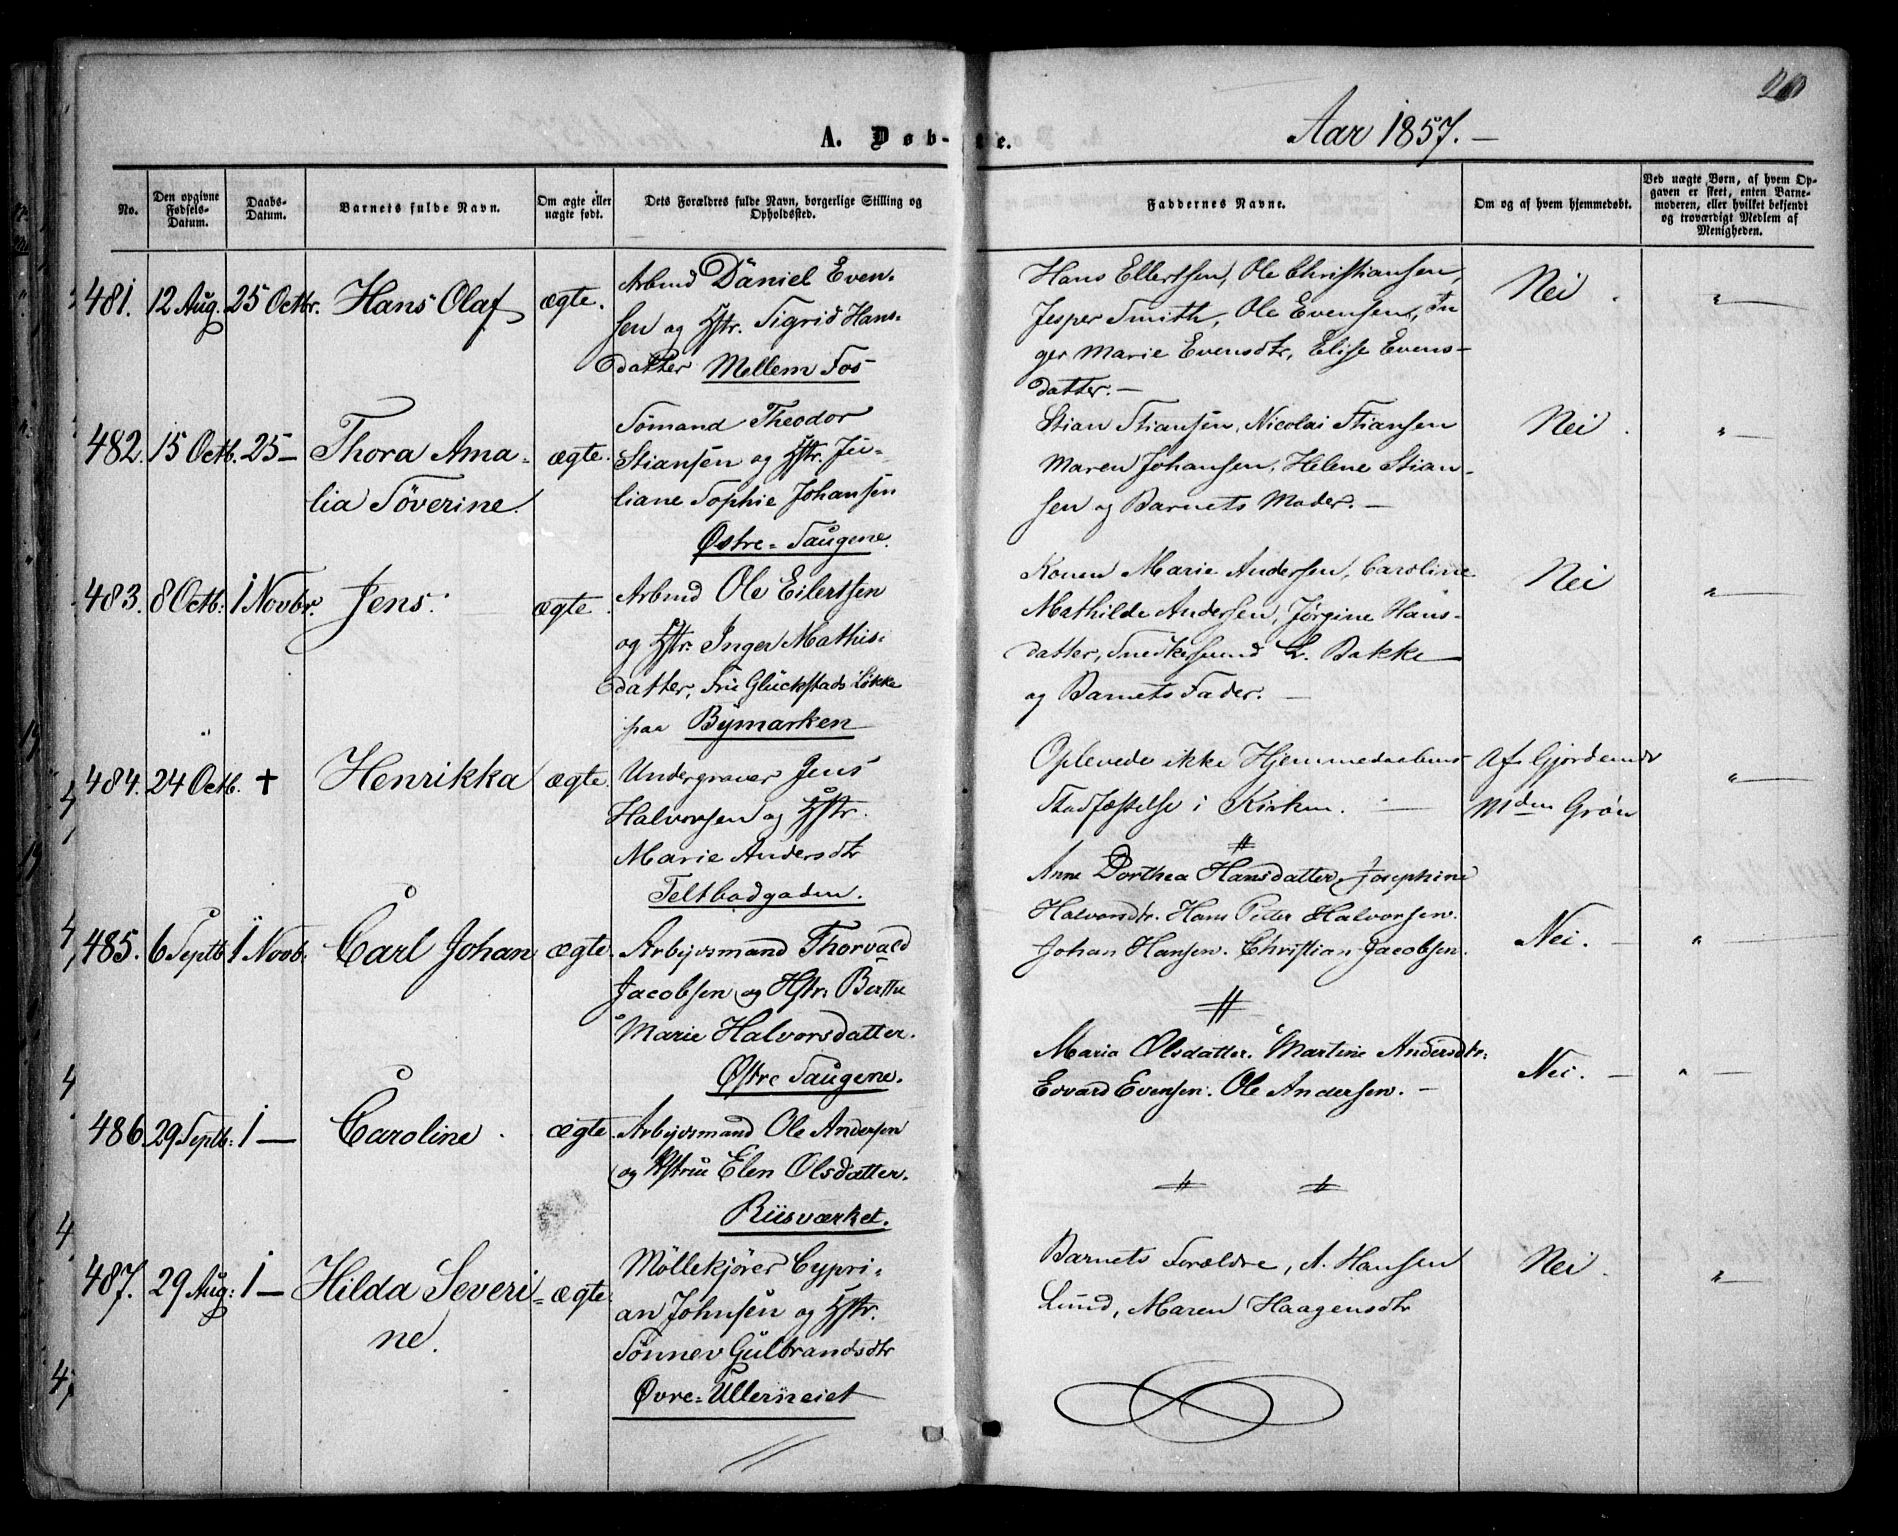 20
Aar 1857.
A. Døb-te.
No.
Den opgivne Fødsels-Datum.
Daabs-Datum.
Barnets fulde Navn.
Om ægte eller uægte født.
Dets Forældres fulde Navn, borgerlige Stilling og Opholdssted.
Faddernes Navne.
Om og af hvem hjemmedøbt.
Ved uægte Børn, af hvem Opgaven er skeet, enten Barnemoderen, eller hvilket bekjendt og troværdigt Medlem af Menigheden.
481. 12 Aug. 25 Octbr. Hans Olaf ægte.
Arbmd Daniel Even-
sen og Hstr. Sigrid Hans-
datter Mellem Fos
Hans Ellertsen, Ole Christiansen,
Jesper Smith, Ole Evensen, In
ger Marie Evensdtr, Elise Evens-
datter. —
Nei . " —
482. 15 Octb. 25 — Thora Ama-
lia Söverine.
ægte.
Sömand Theodor
Stiansen og Hstr. Ju-
liane Sophie Johansen
Østre-Saugene.
Stian Stiansen, Nicolai Stiansen
Maren Johansen, Helene Stian-
sen og Barnets Moder. —
Nei . " —
483. 8 Octb: 1 Novbr. Jens. ægte.
Arbmd Ole Eilertsen
og Hstr. Inger Mathis-
datter, Fru Glückstads Løkke
paa Bymarken
Konen Marie Andersen, Caroline
Mathilde Andersen, Jørgine Hans-
datter, Snedkersvend L. Bakke
og Barnets Fader. —
Nei " —
484. 24 Octb. + Henrikka ægte.
Undergraver Jens
Halvorsen og Hstr.
Marie Andersdtr
Teltbodgaden.
Oplevede ikke Hjemmedaabens
Stadfæstelse i Kirken. —
Af Gjordemdr
Mden Grön
" —
485. 6 Septb 1 Novb. Carl Johan ægte.
Arbejdsmand Thorvald
Jacobsen og Hstr. Berthe
Marie Halvorsdatter.
Østre Saugene.
Anne Dorthea Hansdatter, Josephine
Halvorsdtr. Hans Peter Halvorsen.
Johan Hansen. Christian Jacobsen.
Nei. — " —
486. 29 Septb: 1 — Caroline. ægte.
Arbejdsmand Ole Andersen
og Hstrue Elen Olsdatter.
Riisværket.
Maria Olsdatter. Martine Andersdtr:
Edvard Evensen. Ole Andersen. —
Nei. — " —
487. 29 Aug: 1 — Hilda Severi-
ne.
ægte.
Möllekjörer Cypri-
an Johnsen og Hstr.
Sönnev Gulbrandsdtr
Øvre-Ullerneiet
Barnets Forældre, A. Hansen
Lund, Maren Haagensdtr
Nei. " —